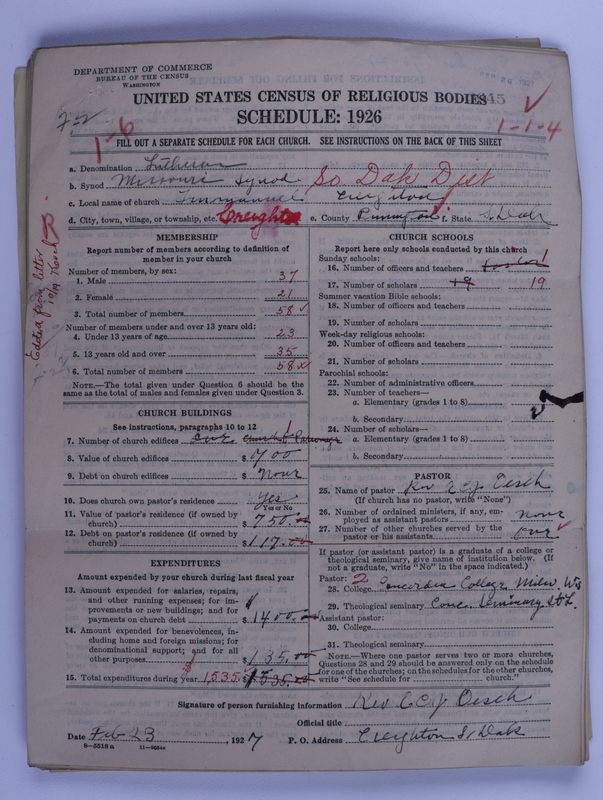 DEPARTMENT OF COMMERCE
BUREAU OF THE CENSUS
WASHINGTON
UNITED STATES CENSUS OF RELIGIOUS BODIES
SCHEDULE: 1926
1-6
1-1-4
FILL OUT A SEPARATE SCHEDULE FOR EACH CHURCH. SEE INSTRUCTIONS ON THE BACK OF THIS SHEET
a. Denomination Lutheran
b. Synod Missouri Synod So. Dak Dist
c. Local name of church Immanuel Creighton
d. City, town, village, or township, etc. Creighton e. County Pennington f. State S. Dak
Added from letter
MEMBERSHIP
Report number of members according to definition of
member in your church
Number of members, by sex:
1. Male 37
2. Female 21
3. Total number of members 58
Number of members under and over 13 years old:
4. Under 13 years of age 23
5. 13 years old and over 35
6. Total number of members 58
NOTE.—The total given under Question 6 should be the
same as the total of males and females given under Question 3.
CHURCH BUILDINGS
See instructions, paragraphs 10 to 12
7. Number of church edifices one 1
8. Value of church edifices $ 700
9. Debt on church edifices $ None
10. Does church own pastor's residence Yes
Yes or No
11. Value of pastor's residence (if owned by
church) $ 750.00
12. Debt on pastor's residence (if owned by
church) $ 117.00
EXPENDITURES
Amount expended by your church during last fiscal year
13. Amount expended for salaries, repairs,
and other running expenses; for im-
provements or new buildings; and for
payments on church debt $ 1400.00
14. Amount expended for benevolences, in-
cluding home and foreign missions; for
denominational support; and for all
other purposes $ 135.00
15. Total expenditures during year 1,535 $ 1535.00
CHURCH SCHOOLS
Report here only schools conducted by this church
Sunday schools:
16. Number of officers and teachers 1
17. Number of scholars 19 19
Summer vacation Bible schools:
18. Number of officers and teachers
19. Number of scholars
Week-day religious schools:
20. Number of officers and teachers
21. Number of scholars
Parochial schools:
22. Number of administrative officers
23. Number of teachers—
a. Elementary (grades 1 to 8)
b. Secondary
24. Number of scholars—
a. Elementary (grades 1 to 8)
b. Secondary
PASTOR
25. Name of pastor Rev. C. C. J. Oesch
(If church has no pastor, write "None")
26. Number of ordained ministers, if any, em-
ployed as assistant pastors None
27. Number of other churches served by the
pastor or his assistants One
If pastor (or assistant pastor) is a graduate of a college or
theological seminary, give name of institution below. (If
not a graduate, write "No" in the space indicated.)
Pastor: 2
28. College Concordia College Milw. Wis
29. Theological seminary Conc. Seminary St. L.
Assistant pastor:
30. College
31. Theological seminary
NOTE.—Where one pastor serves two or more churches,
Questions 28 and 29 should be answered only on the schedule
for one of the churches; on the schedules for the other churches,
write "See schedule for church."
Signature of person furnishing information Rev C. C. J. Oesch
Official title
Date Feb 23, 1927 P. O. Address Creighton S. Dak
8-5518a 11-9034a